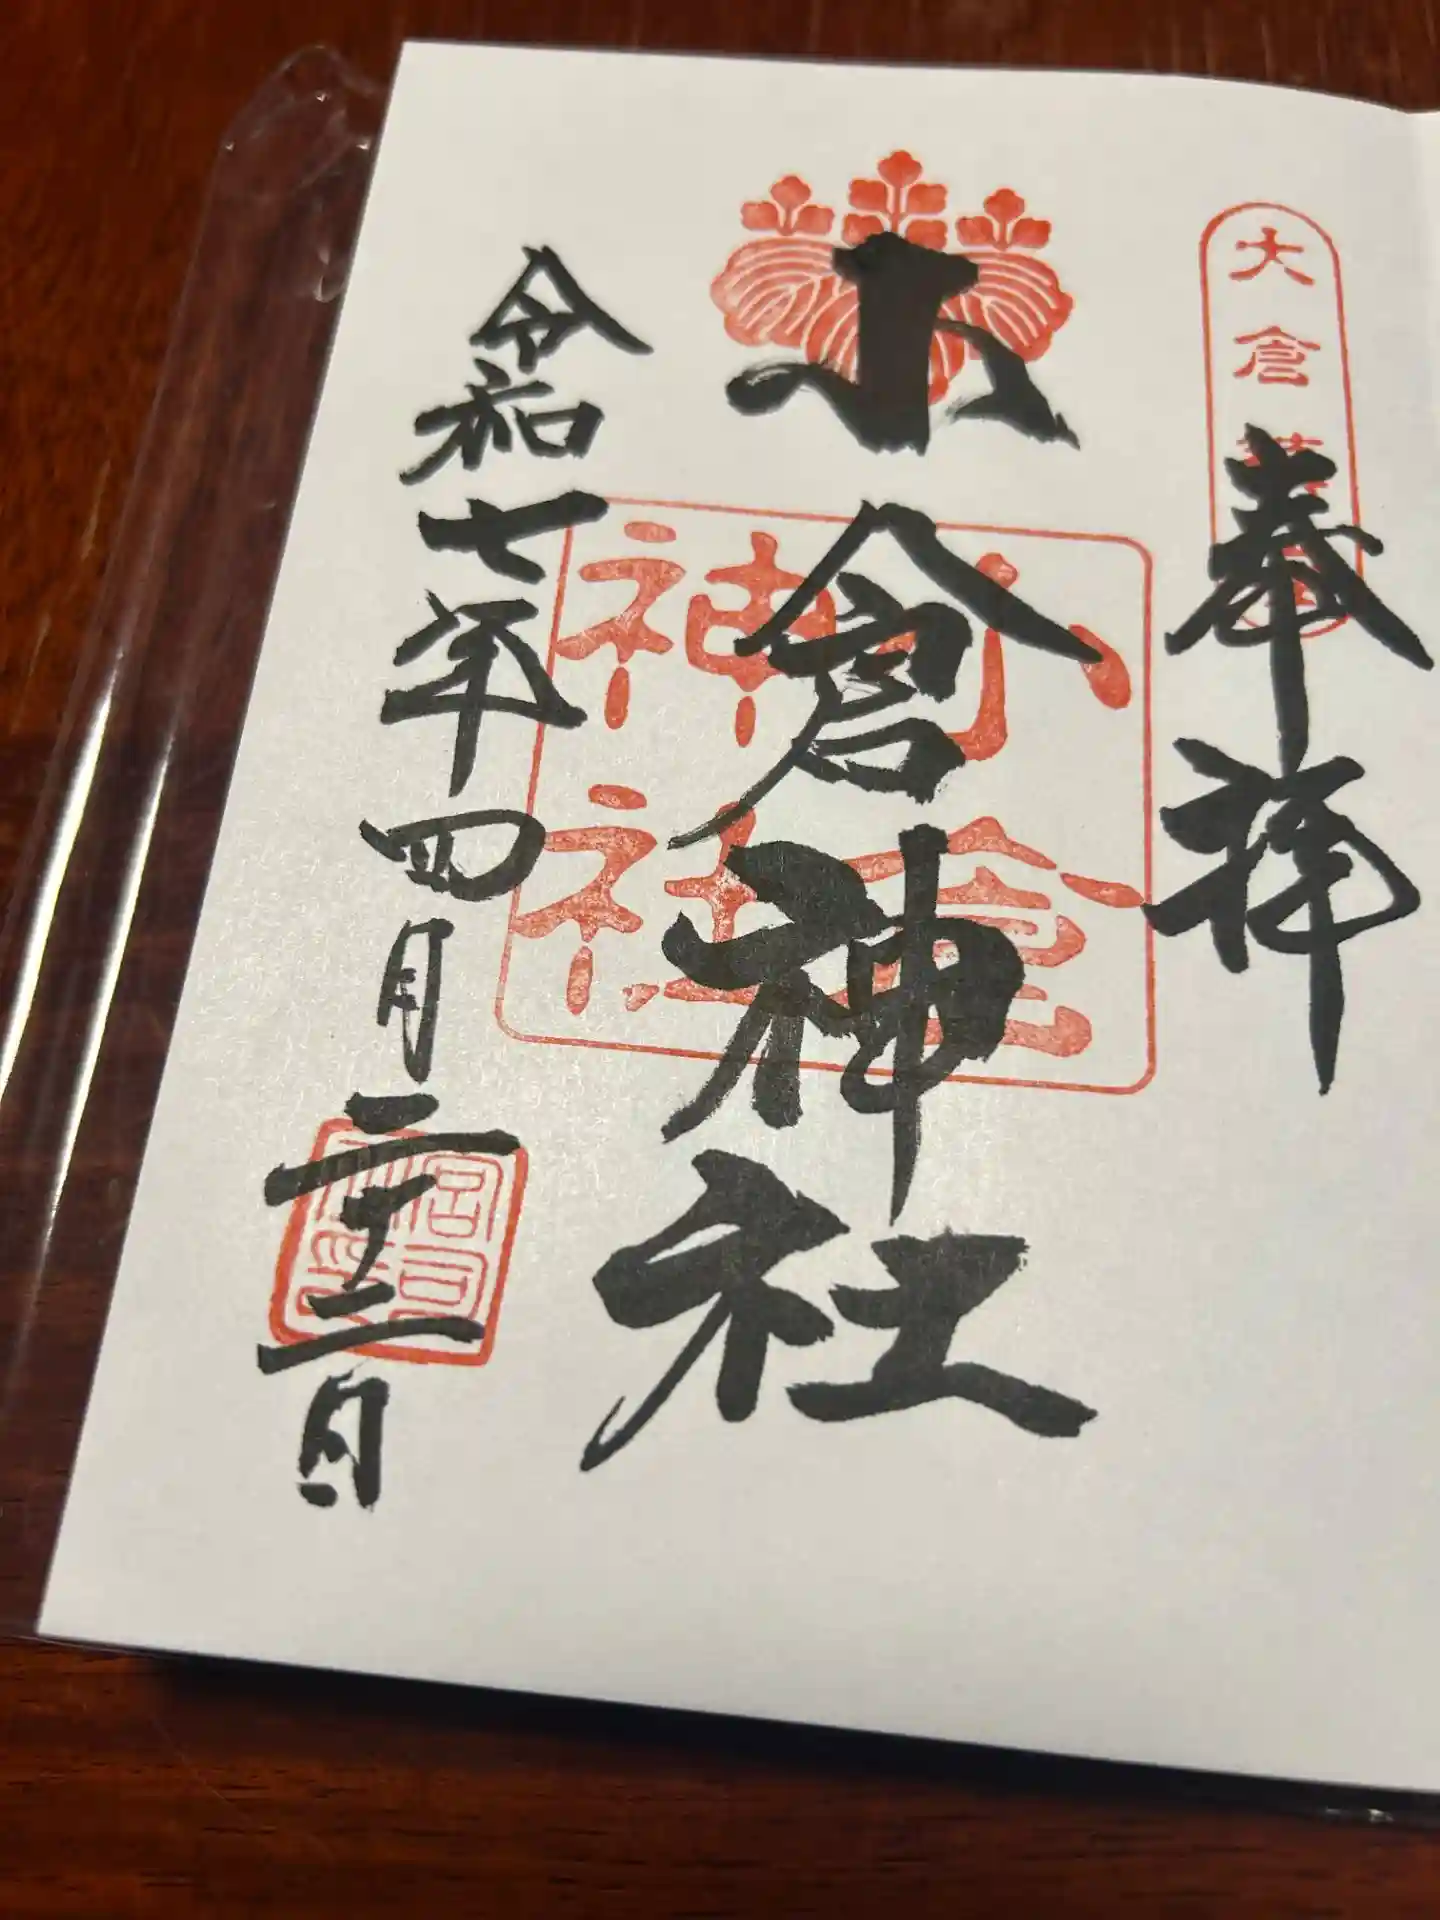 大倉
奉拝
小倉神社
小倉
神社
令和七年四月二十二日
宮司
之印